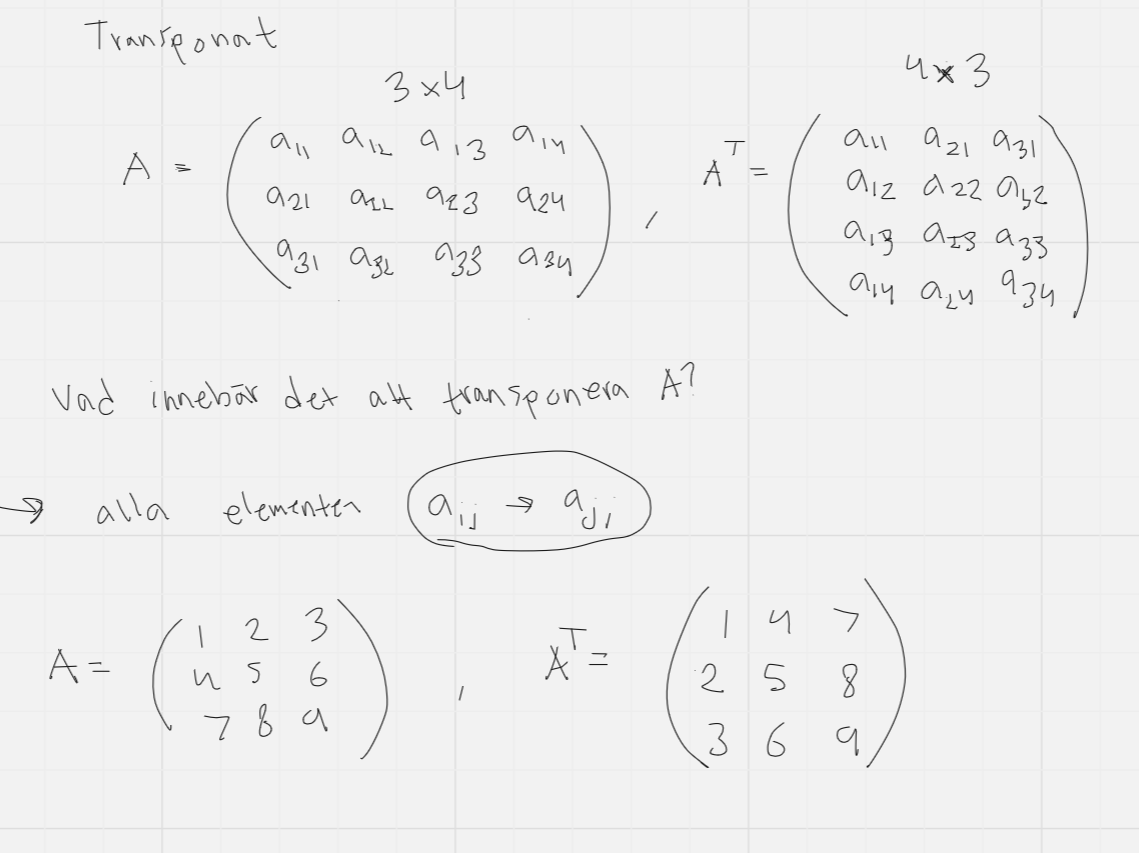 Transponat
3 x 4
4 x 3
A = ( a11 a12 a13 a14
a21 a22 a23 a24
a31 a32 a33 a34 ) ,
A^T = ( a11 a21 a31
a12 a22 a32
a13 a23 a33
a14 a24 a34 )
Vad innebär det att transponera A?
→ alla elementen aij → aji
A = ( 1 2 3
4 5 6
7 8 9 ) ,
A^T = ( 1 4 7
2 5 8
3 6 9 )